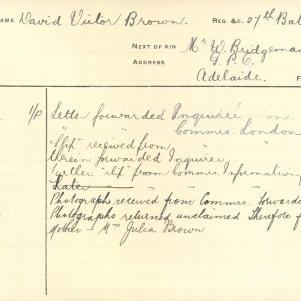 NAME David Victor Brown. REG. &C. 27th Bat
NEXT OF KIN Mr W. Bridgeman
ADDRESS G.P.O.
Adelaide.
1/P Letter forwarded Inquiries on
Commrs. London
"Slip" received from " "
therein forwarded Inquirer
Further "slip" from Commrs. Information
Later
Photograph received from Commrs. forwarded
Photographs returned unclaimed Therefore f
Mother - Mrs Julia Brown